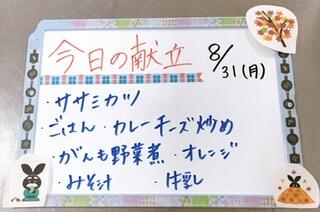 今日の献立 8/31(月)
・ササミカツ
・ごはん ・カレーチーズ炒め
・がんも野菜煮 ・オレンジ
・みそ汁 ・牛乳